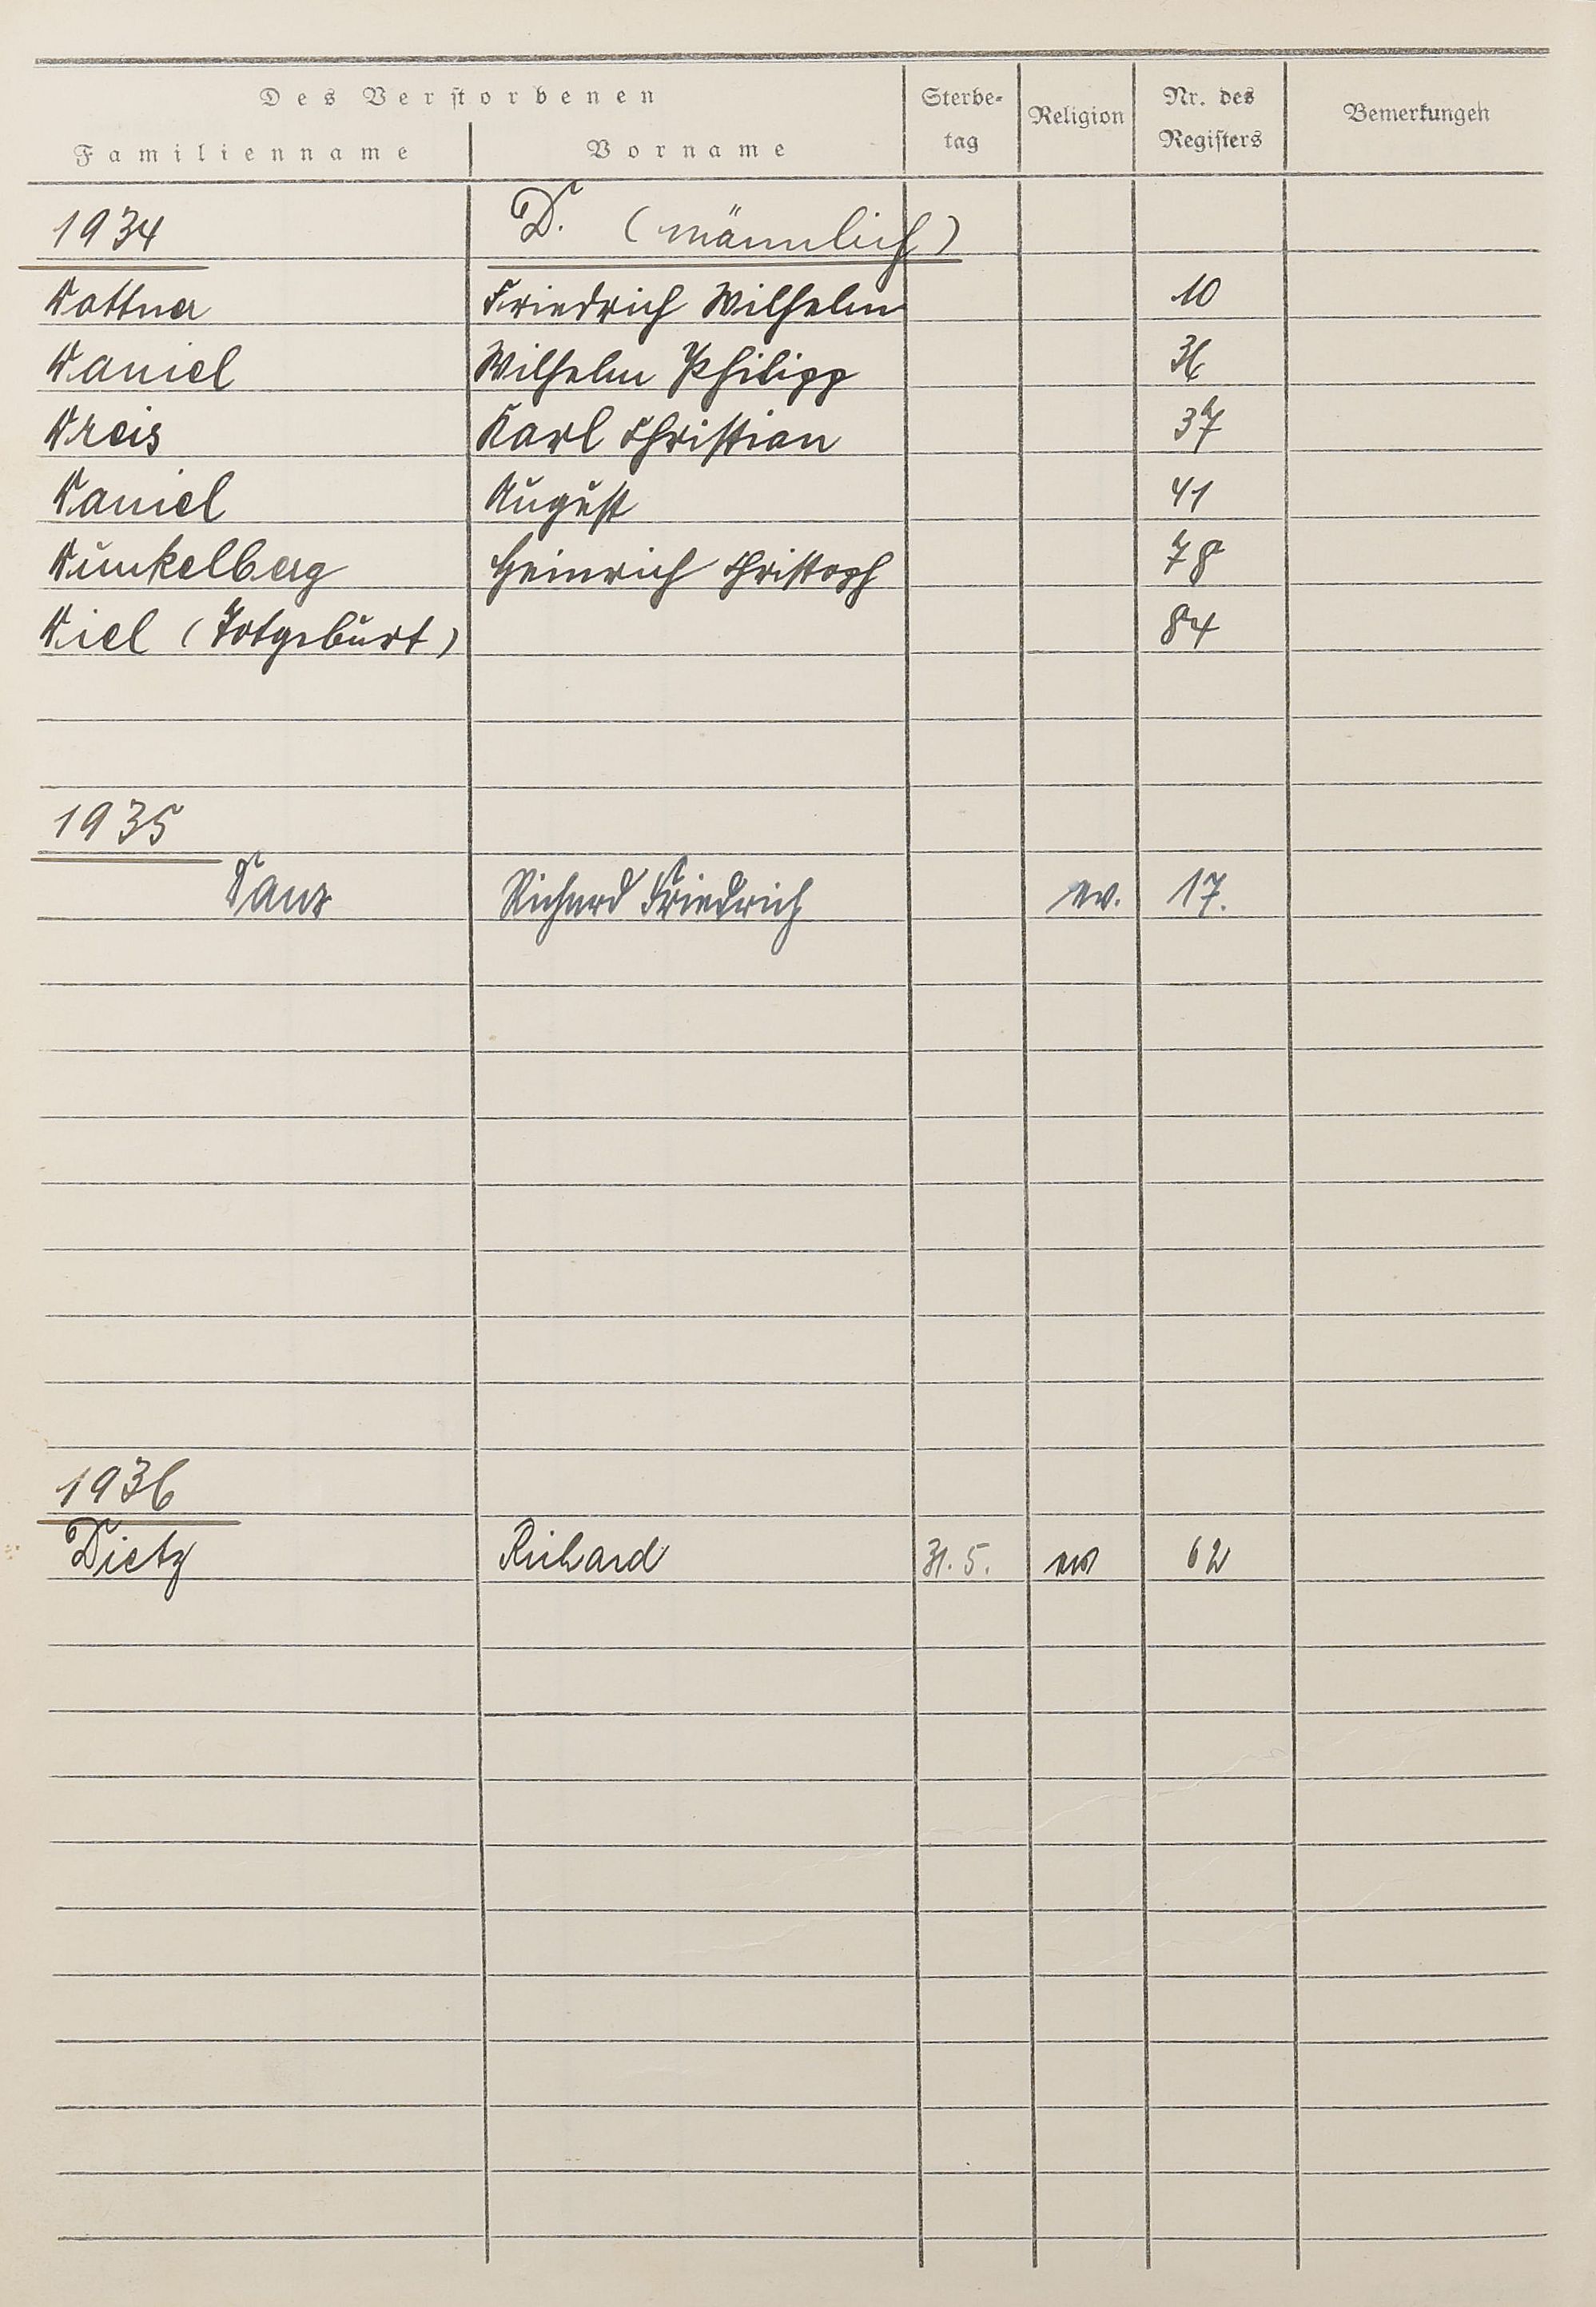 Des Verstorbenen
Familienname Vorname Sterbe-tag Religion Nr. des Registers Bemerkungen
1934 D. (männlich)
Dottner Friedrich Wilhelm 10
Daniel Wilhelm Philipp 36
Dreis Karl Christian 37
Daniel August 41
Dunkelberg Heinrich Christoph 78
Diel (Totgeburt) 84
1935
Richard Friedrich ev. 17.
1936
Dietz Richard 31. 5. ev 62